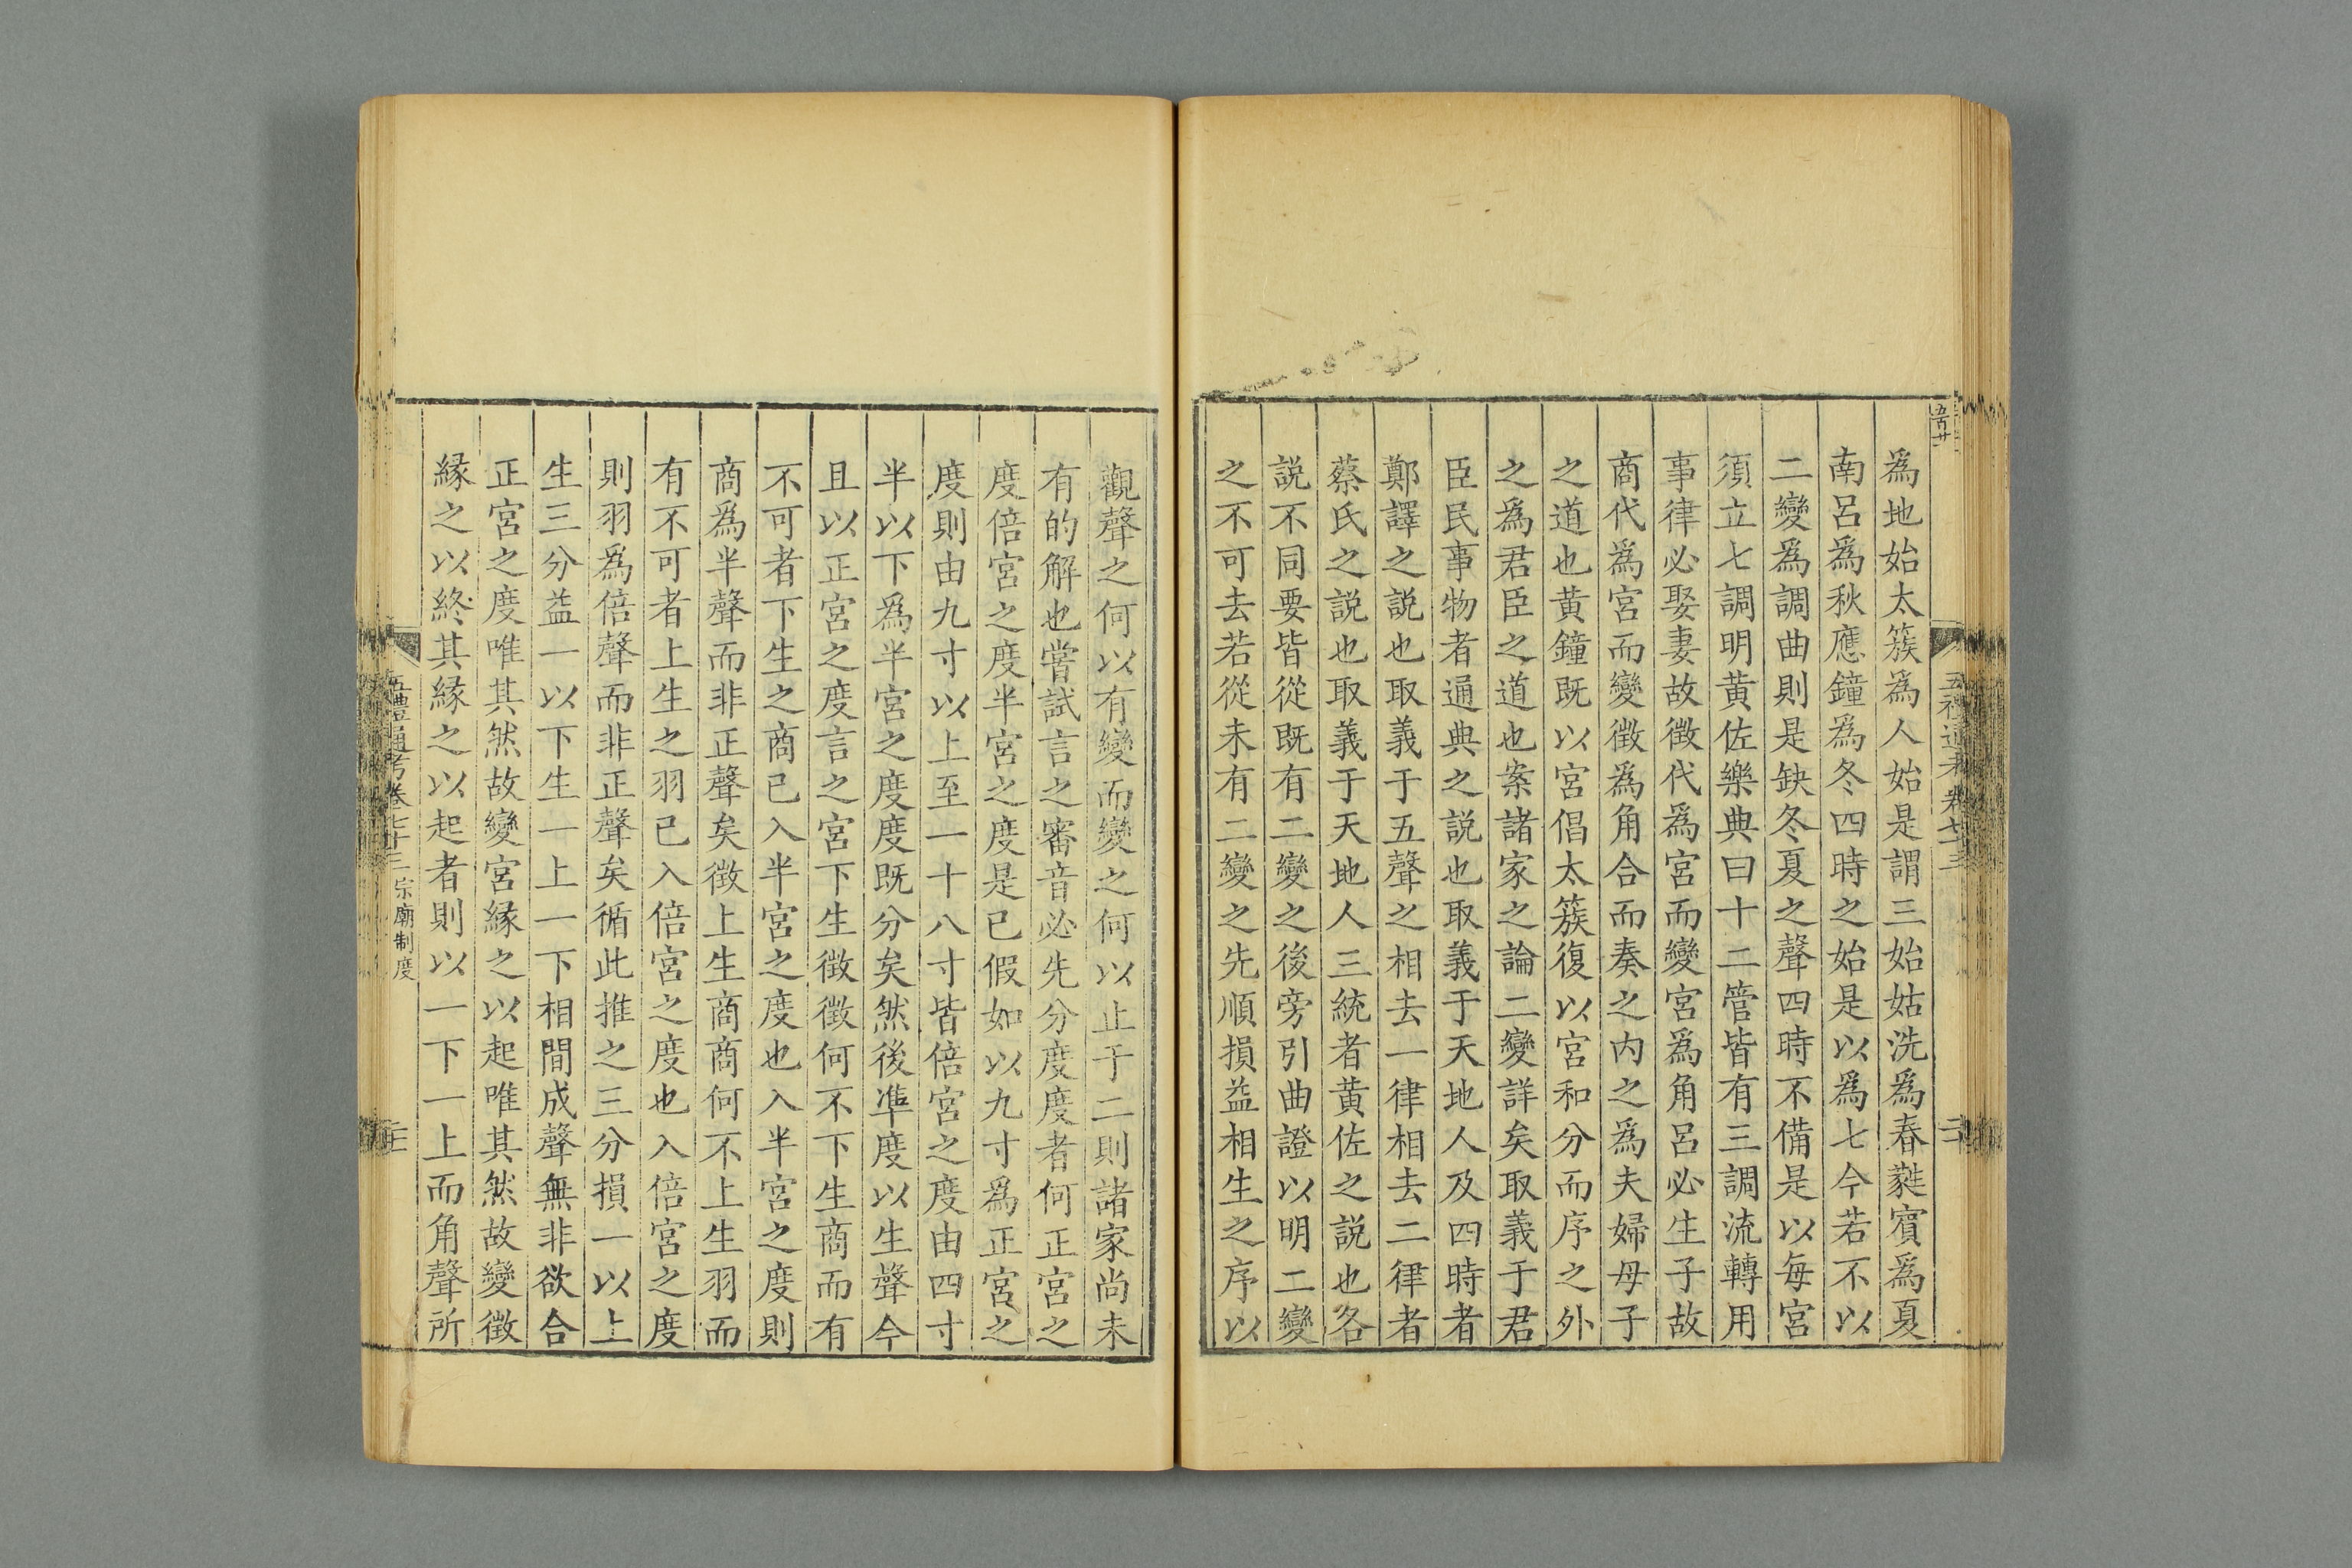 五百廿一
五禮通考卷七十三
爲地始太簇爲人始是謂三始姑洗爲春蕤賓爲夏
南呂爲秋應鐘爲冬四時之始是以爲七今若不以
二變爲調曲則是缺冬夏之聲四時不備是以每宮
須立七調明黄佐樂典曰十二管皆有三調流轉用
事律必娶妻故徴代爲宮而變宮爲角呂必生子故
商代爲宮而變徴爲角合而奏之内之爲夫婦母子
之道也黄鐘既以宮倡太簇復以宮和分而序之外
之爲君臣之道也案諸家之論二變詳矣取義于君
臣民事物者通典之説也取義于天地人及四時者
鄭譯之説也取義于五聲之相去一律相去二律者
蔡氏之説也取義于天地人三統者黄佐之説也各
説不同要皆從既有二變之後旁引曲證以明二變
之不可去若從未有二變之先順損益相生之序以
觀聲之何以有變而變之何以止于二則諸家尚未
有的解也嘗試言之審音必先分度度者何正宮之
度倍宮之度半宮之度是已假如以九寸爲正宮之
度則由九寸以上至一十八寸皆倍宮之度由四寸
半以下爲半宮之度度既分矣然後準度以生聲今
且以正宮之度言之宮下生徴徴何不下生商而有
不可者下生之商已入半宮之度也入半宮之度則
商爲半聲而非正聲矣徴上生商商何不上生羽而
有不可者上生之羽已入倍宮之度也入倍宮之度
則羽爲倍聲而非正聲矣循此推之三分損一以上
生三分益一以下生一上一下相間成聲無非欲合
正宮之度唯其然故變宮緣之以起唯其然故變徴
緣之以終其緣之以起者則以一下一上而角聲所
五禮通考卷七十三 宗廟制度